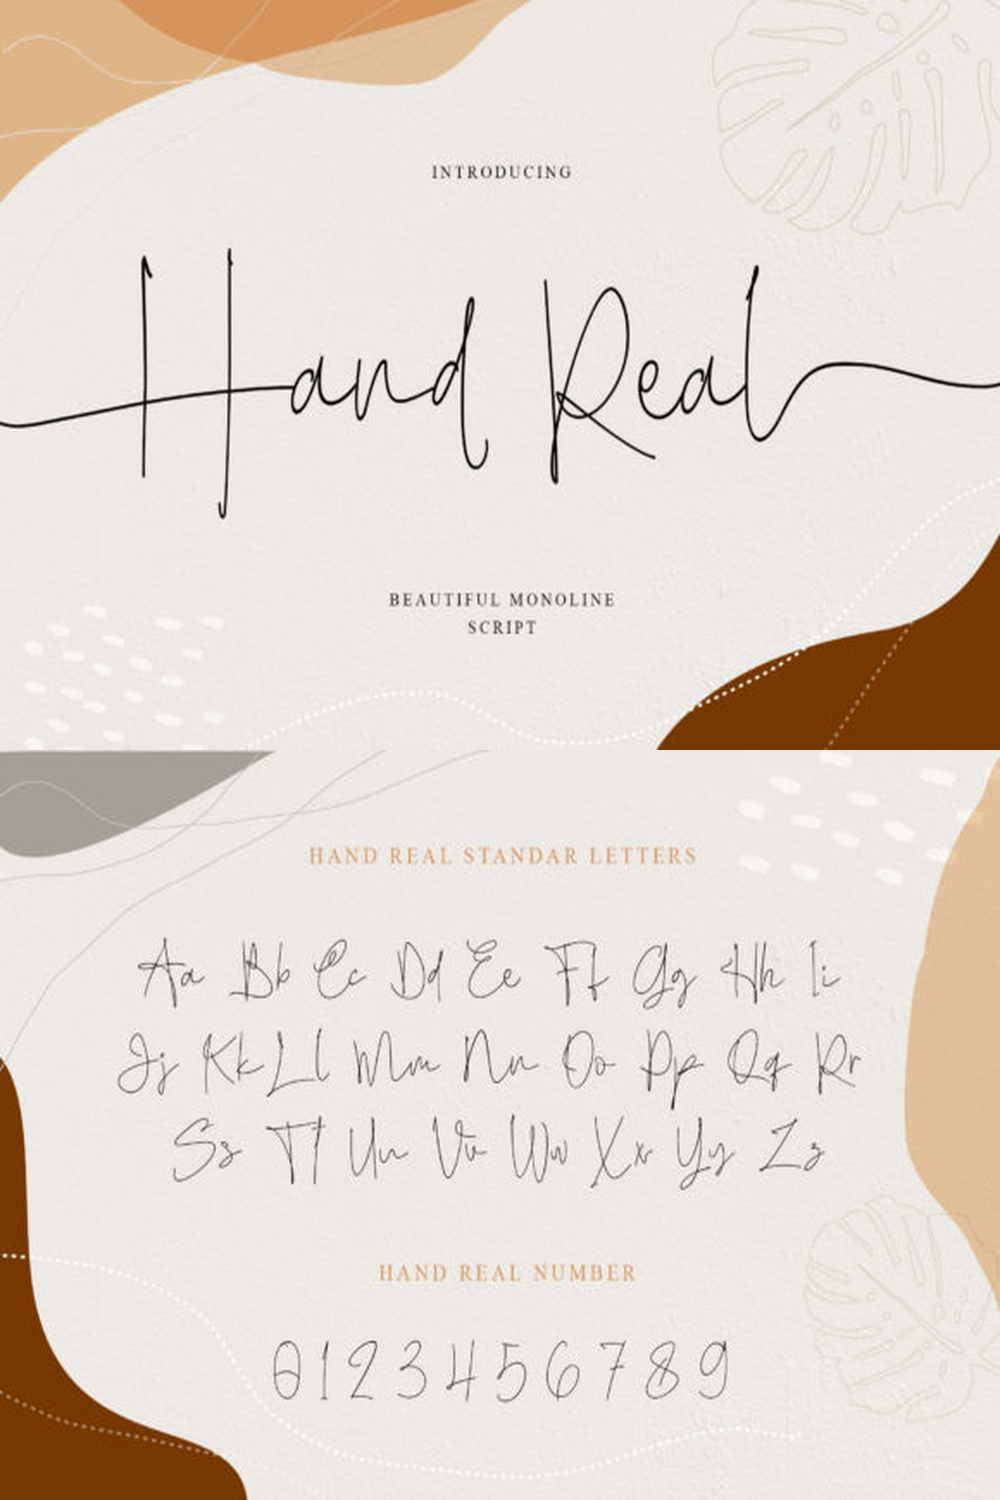 INTRODUCING
Hand Real
BEAUTIFUL MONOLINE
SCRIPT
HAND REAL STANDAR LETTERS
Aa Bb Cc Dd Ee Ff Gg Hh Ii
Jj Kk Ll Mm Nn Oo Pp Qq Rr
Ss Tt Uu Vv Ww Xx Yy Zz
HAND REAL NUMBER
0123456789